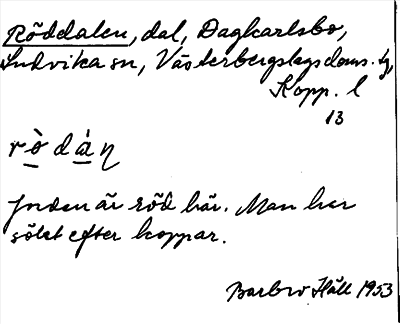 Röddalen, dal, Dagkarlsbo,
Ludvika sn, Västerbergslags doms. tg,
Kopp. l
13
rò̱dá̱η
Jorden är röd här. Man har
sökt efter koppar.
Barbro Häll 1953